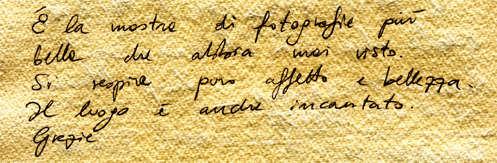 È la mostra di fotografie più
bella che abbia mai visto.
Si respira puro affetto e bellezza.
Il luogo è anche incantato.
Grazie